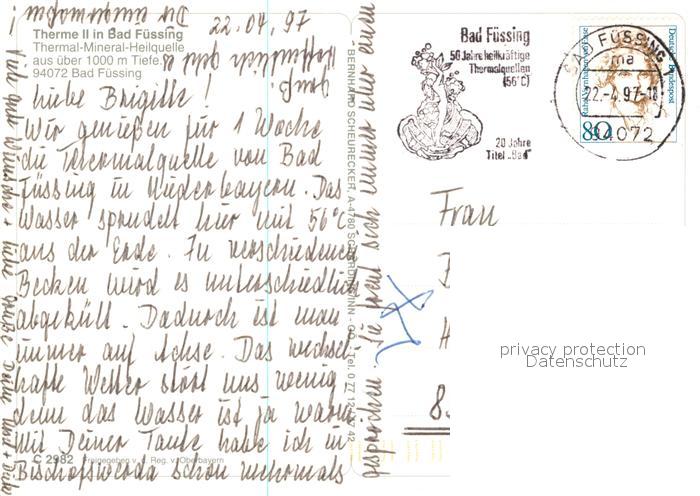 22.04.97
Therme II in Bad Füssing
Thermal-Mineral-Heilquelle
aus über 1000 m Tiefe.
94072 Bad Füssing
Liebe Brigitte!
Wir genießen für 1 Woche
die Thermalquelle von Bad
Füssing in Niederbayern. Das
Wasser sprudelt hier mit 56°C
aus der Erde. In verschiedenen
Becken wird es unterschiedlich
abgekühlt. Dadurch ist man
immer auf Achse. Das wechsel-
hafte Wetter stört uns wenig
denn das Wasser ist ja warm.
Mit Deiner Tante habe ich in
Bischofswerda schon mehrmals
gesprochen. Sie freut sich immer über einen
Viele gute Wünsche + liebe Grüße Deine
C 2982 Freigegeben v. d. Reg. v. Oberbayern
BERNHARD SCHEURECKER, A-4780 SCHÄRDING/INN
Bad Füssing
50 Jahre heilkräftige
Thermalquellen
(56°C)
20 Jahre
Titel „Bad“
BAD FÜSSING 1
ma
22.-4.97-18
94072
Deutsche Bundespost
80
Frau
8
privacy protection
Datenschutz